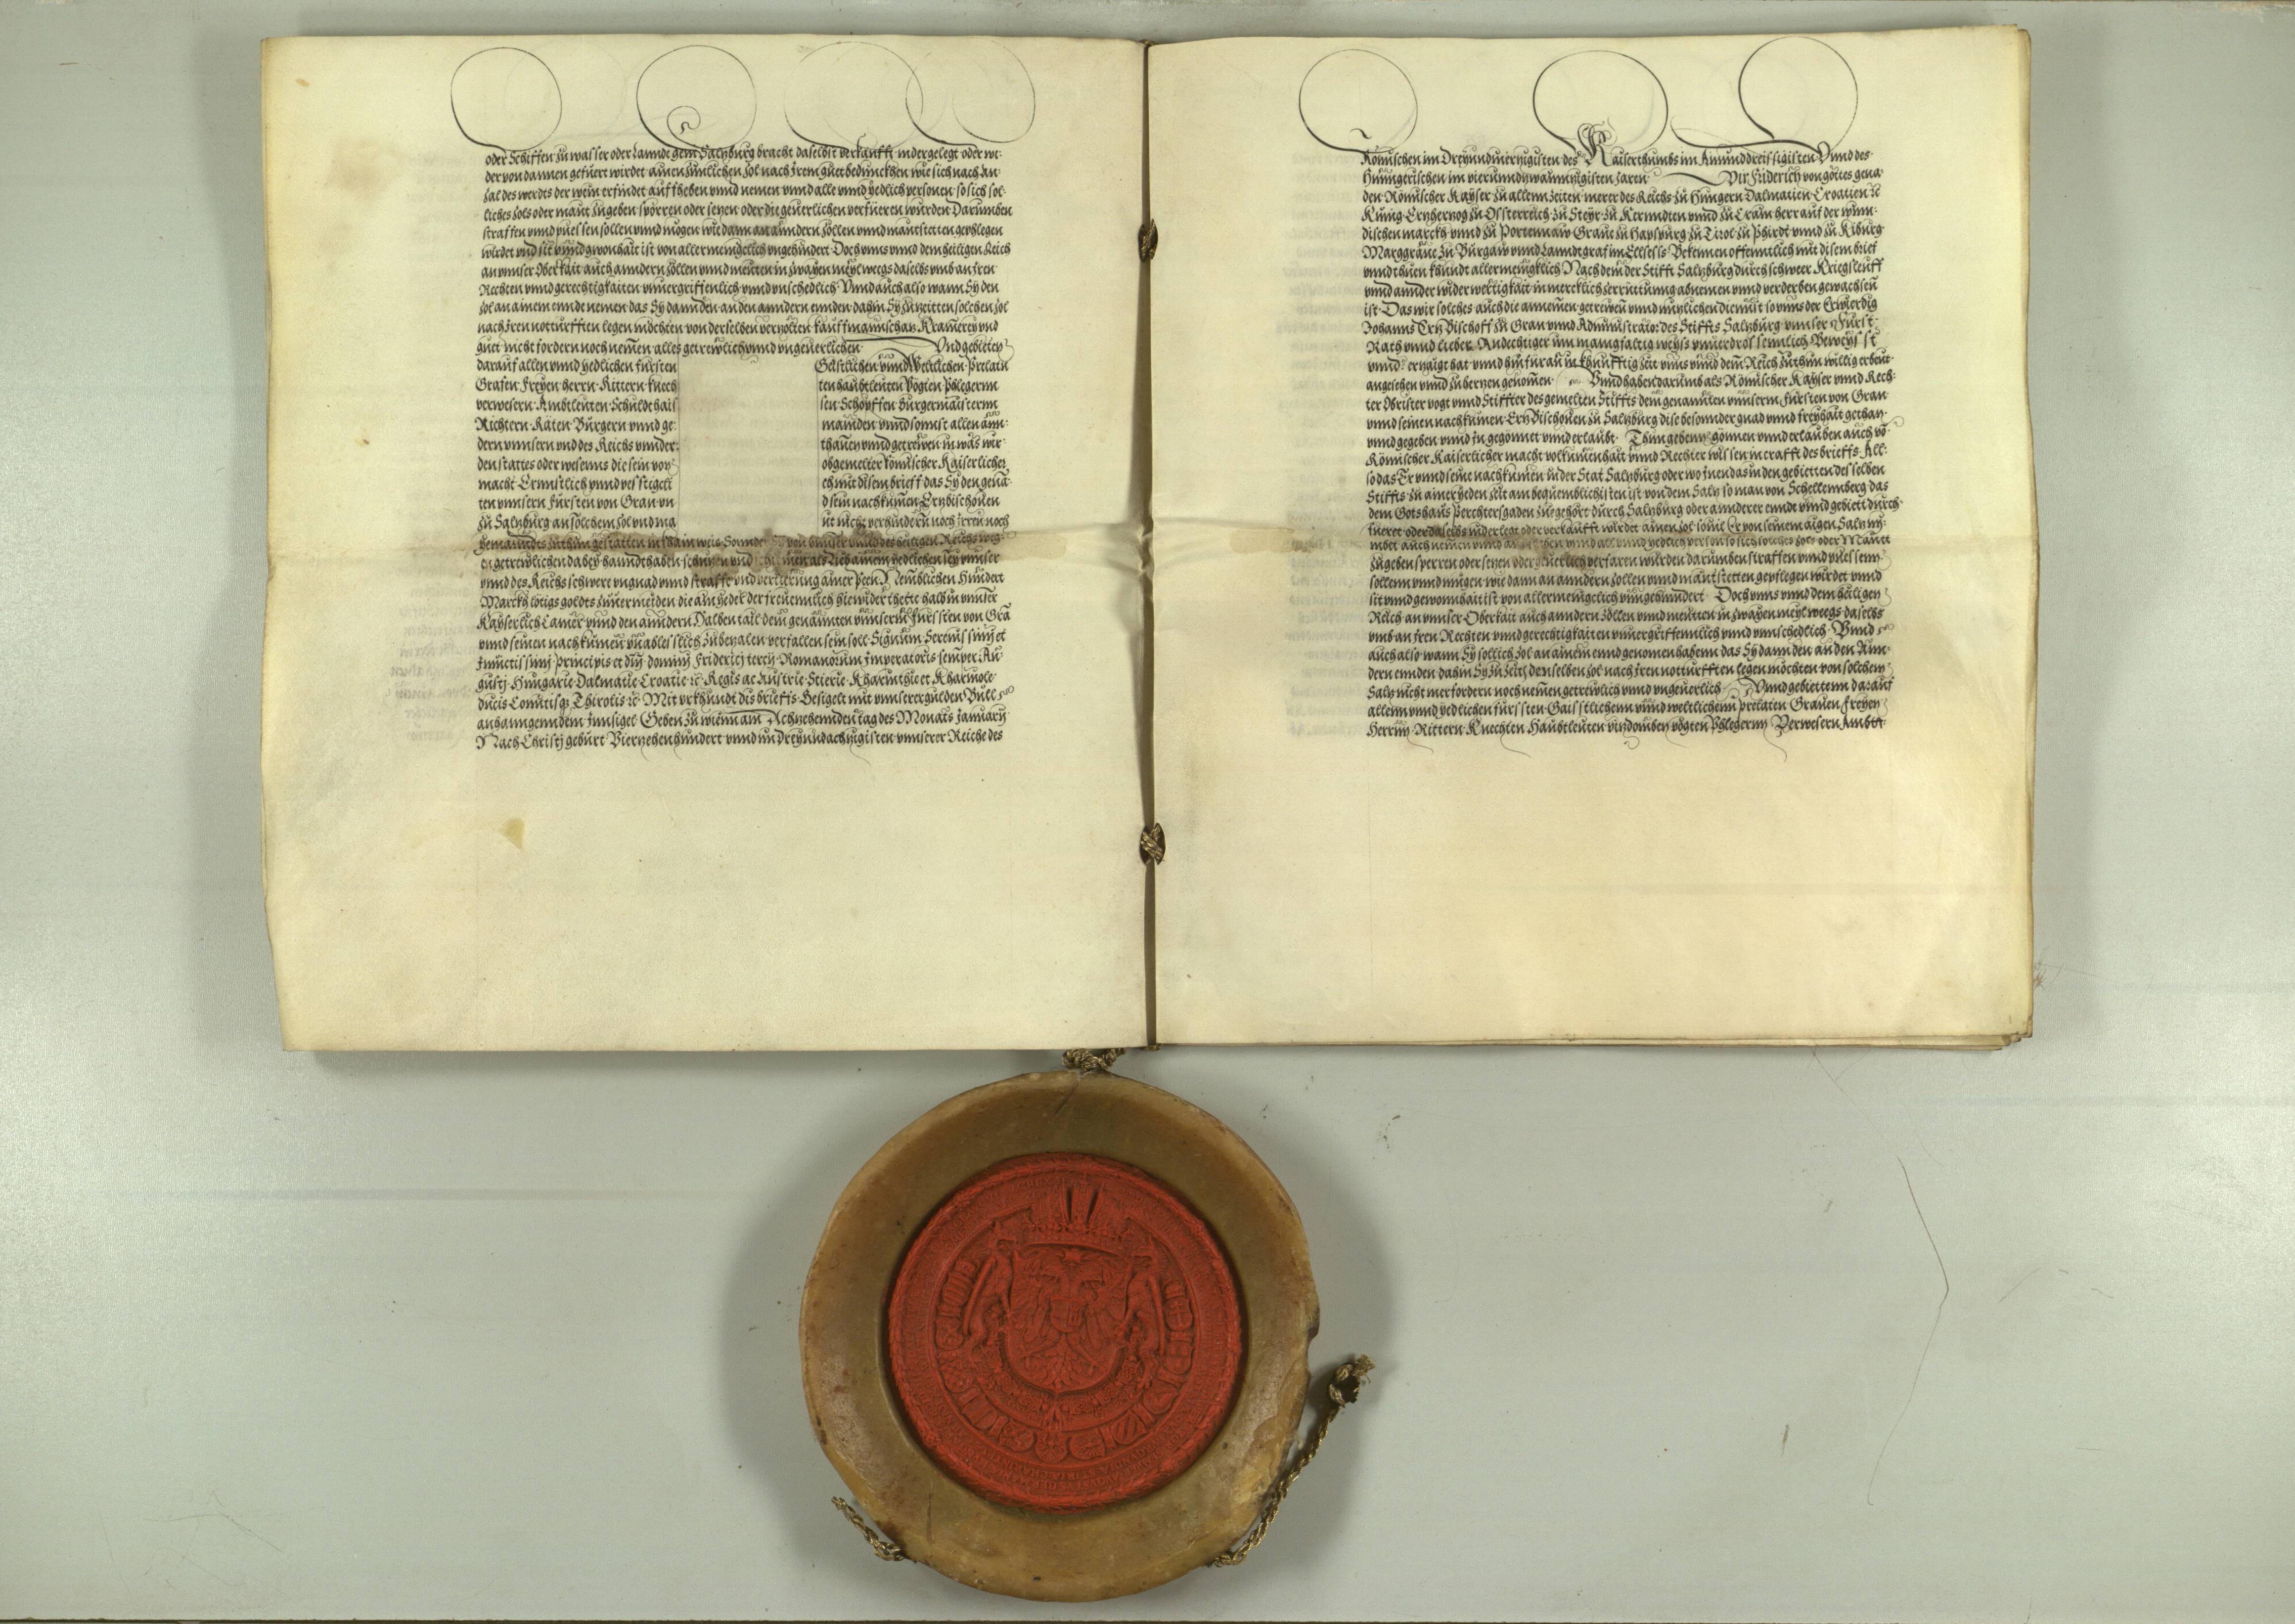 oder Schiffen zu wasser oder Lannde gein Saltzburg bracht daselbst verkaufft nidergelegt oder wi-
der von dannen gefuert wirdet ainen zimlichen zol nach Irem guet beduncken wie sich nach An-
zal des werds der wein erfindet aufheben vnnd nemen vnnd alle vnnd yedlich personen so sich sol-
liches zols oder maut zugeben spörren oder setzen oder die geuerlichen verfüeren würden Darumben
straffen vnnd püessen sollen vnnd mögen wie dann an anndern zöllen vnnd mautstetten gephlegen
wirdet vnd sit vnnd gwonhait ist von allermenigclich vngehindert Doch vnns vnnd dem heiligen Reich
an vnnser Oberkait auch anndern zöllen vnnd meutten in zwayen meyl weegs daselbs vmb an Iren
Rechten vnnd gerechtigkaiten vnuergriffenlich vnnd vnschedlich Vnnd auch also wann Sy den
zol an ainem ennde nemen das Sy dann den an den anndern ennden dahin Sy zu zeitten solchen zol
nach Iren notturfften legen möchten von derselben verzolten kauffmannschaz Kramerey vnd
guet nicht fordern noch nemen alles getrewlich vnnd vngeuerlichen Vnd gebieten
darauf allen vnnd yedlichen fursten Geistlichen vnnd Weltlichen Prelatn
Grafen Freyen herrn Rittern knech ten haubtleuten Vogten Phlegernn
verwesern Ambtleuten Schuldthais sen Schöpffen Burgermaisternn
Richtern Räten Burgern vnnd ge mainden vnnd sonnst allen ann-
dern vnnsern vnd des Reichs vnnder- thanen vnnd getrewen in was wir-
den stattes oder wesenns die sein von obgemelter Römischer Kaiserlicher
macht Ernnstlich vnnd vesstigcli ch mit disem brieff das Sy den gena-
ten vnnsern fürsten von Gran vn d sein nachkumen Ertzbischouen
zu Saltzburg an solchem zol vnd ma ut nicht verhindern noch Irren noch
yemanndts zuthun gestatten in kain weis Sonnder von vnnser vnnd des heiligen Reichs weg-
en getrewlichen dabey hanndthaben schutzen vnd als lieb ainem yedlichen sey vnnser
vnnd des Reichs schwere vngnad vnnd straff vnd verlierung ainer peen Nemblichen Hundert
Marckh lötigs goldts zuuermeiden die ain yeder der freuennlich hiewider thette halb in vnnser
Kayserlich Camer vnnd den anndern Halben tail dem genannten vnnserm fürssten von Gra
vnnd seinen nachkumen vnablesslich zubezalen verfallen sein soll Signum Serenissimj et
Inuictissimj Principis et dnj dominj Friderici tercij Romanorum Imperatoris semper Au-
gustj Hungarie Dalmatie Croatie ꝛc Regis ac Austrie Stierie Kharinthie et Kharniole
ducis Comitisqꝫ Thirolis ꝛc Mit vrkhundt dis brieffs Besigelt mit vnnserer gulden Bull
anhanngenndem Innsigel Geben zu wienn am Achtzehennden tag des Monats January
Nach Christj geburt Vierzehenhundert vnnd im Dreyundachtzigisten vnnserer Reiche des
Römischen im Dreyundviertzigisten des Kaiserthumbs im Ainunddreissigisten Vnnd des
Hunngerischen im vierunndtzwainntzigisten Jaren Wir Friderich von gottes gena-
den Römischer Kayser zu allenn zeiten merer des Reichs zu Hungern Dalmatien Croatien ꝛc
Kunig Ertzhertzog zu Ossterreich zu Steyr zu Kernndten vnnd zu Crain herr auf der winn-
dischen marckh vnnd zu Portennaw Graue zu Habspurg zu Tirol zu Phirdt vnnd zu Kiburg
Marggraue zu Burgaw vnnd Lanndtgraf im Ellsess Bekennen offennlich mit disem brief
vnnd thuen khundt allermenigklich Nach dem der Stifft Saltzburg durch schweer Kriegsleuff
vnnd annder widerwertigkait in mercklich zerrüttung abnemen vnnd verderben gewachsen
ist Das wir solches auch die annemen getrewen vnnd nutzlichen diennst so vnns der Erwierdig
Johanns Ertzbischoff zu Gran vnnd Administrator des Stiffts Saltzburg vnnser Fürst
Rath vnnd lieber Andechtiger inn manigfaltig weyss vnuerdrossennlich Beweysst
vnnd ertzaigt hat vnnd hinfuran in khunfftig zeit vnns vnnd dem Reich zuthun willig erbeut
angesehen vnnd zu hertzen genomen Vnnd haben darumb als Römischer Kayser vnnd Rech-
ter Obrister vogt vnnd Stiffter des gemelten Stiffts dem genannten vnnserm Fürsten von Gran
vnnd seinen nachkumen Ertzbischouen zu Saltzburg dise besonnder gnad vnnd freyhait gethan
vnnd gegeben vnnd In gegönnet vnnd erlaubt Thun geben gönnen vnnd erlauben auch vo
Römischer Kaiserlicher macht volkumenhait vnnd Rechter wissen in crafft des brieffs All-
so das Er vnnd seine nachkumen in der Stat Saltzburg oder wo Inen das in den gebietten desselben
Stiffts zu ainer yeden zeit am bequemblichisten ist von dem Saltz so man von Schellennberg das
dem Gotshaus Perchtersgaden zugehört durch Saltzburg oder annderer ennde vnnd gebiett durch-
fueret oder daselbs niderlegt oder verkaufft wirdet ainen zol souil Er von seinem aigen Saltz ny-
mbt auch nemen vnnd vnnd all vnnd yedlich person so sich solches zols oder Mautt
zugeben sperren oder setzen oder geuerlich verfaren würden darumben straffen vnnd püessenn
sollenn vnnd mügen wie dann an anndern zollen vnnd mautstetten gepflegen wirdet vnnd
sit vnnd gewonhait ist von allermenigclich vnngehindert Doch vnns vnnd dem heiligen
Reich an vnnser Oberkait auch anndern zöllen vnnd meutten in zwayen meyl weegs daselbs
vmb an Iren Rechten vnnd gerechtigkaiten vnuergriffennlich vnnd vnnschedlich Vnnd
auch also wann Sy sollich zol an ainem ennd genomen habenn das Sy dann den an den Ann-
dern ennden dahin Sy zu zeitt denselben zol nach Iren notturfften legen möchten von solchem
Saltz nicht mer fordern noch nemen getrewlich vnnd vngeuerlich Vnnd gebiettenn darauf
allenn vnnd yedlichen fürssten Gaisstlichenn vnnd weltlichenn Prelaten Grauen Freyen
Herrnn Rittern Knechten Haubtleuten vitzdomben vögten Phlegernn Verwesern Ambtt